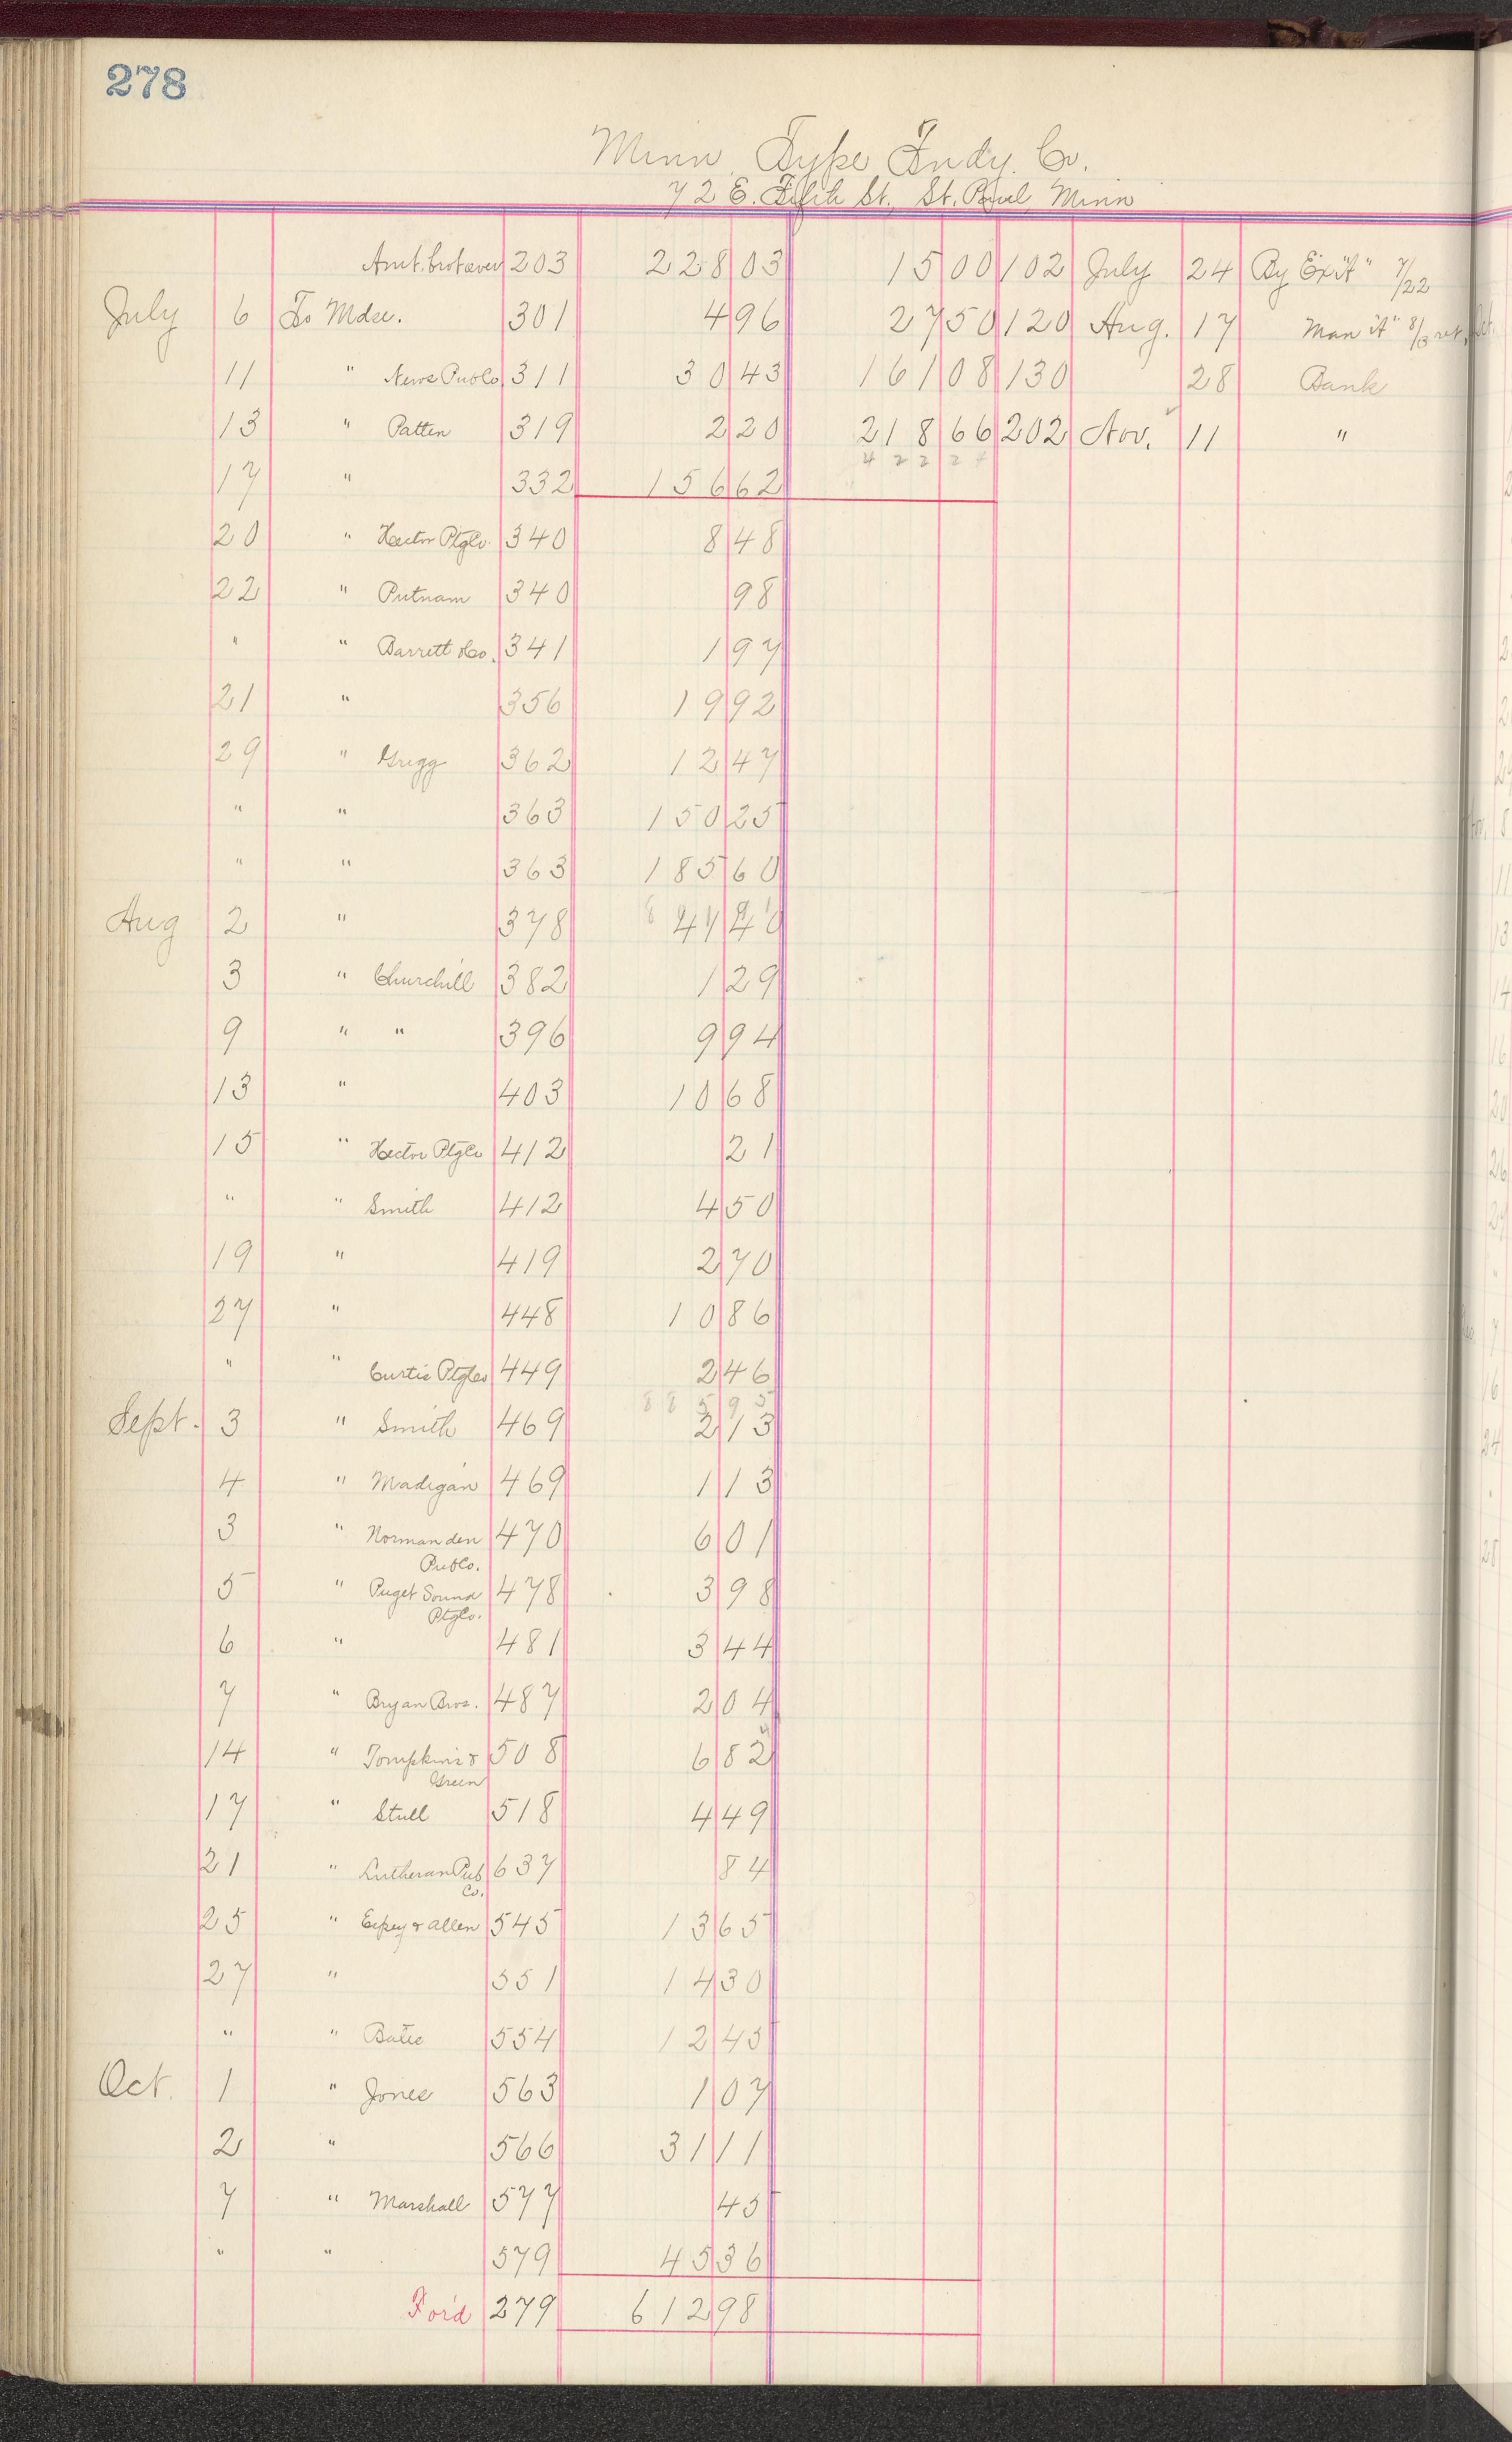 278
Minn. Type Fndy. Co.
72 E. Fifth St., St. Paul, Minn
Amt. brot over 203 228 03 15 00 102 July 24 By Ex "A" 7/22
July 6 To Mdse. 301 4 96 27 50 120 Aug. 17 Man "A" 8/3 ret.
11 " News Pub Co 311 30 43 161 08 130 28 Bank
13 " Patten 319 2 20 218 66 202 Nov. 11 "
4 2 2 2 4
17 " 332 156 62
20 " Hector Ptg Co 340 8 48
22 " Putnam 340 98
" " Barrett & Co. 341 1 97
21 " 356 19 92
29 " Grigg 362 12 47
" " 363 150 25
" " 363 185 60
Aug 2 " 378
3 " Churchill 382 1 29
9 " " 396 9 94
13 " 403 10 68
15 " Hector Ptg Co 412 21
" " Smith 412 4 50
19 " 419 2 70
27 " 448 10 86
" " Curtis Ptg Co 449 2 46
8 8 5 9 5
Sept. 3 " Smith 469 2 13
4 " Madigan 469 1 13
3 " Normanden 470 6 01
Pub Co.
5 " Puget Sound 478 3 98
Ptg Co.
6 " 481 3 44
7 " Bryan Bros. 487 2 04
14 " Tompkins & 508 6 82
Green
17 " Stull 518 4 49
21 " Lutheran Pub 637 84
Co.
25 " Espey & Allen 545 13 65
27 " 551 14 30
" " Batie 554 12 45
Oct. 1 " Jones 563 1 07
2 " 566 31 11
7 " Marshall 577 45
" " 579 45 36
For'd 279 612 98